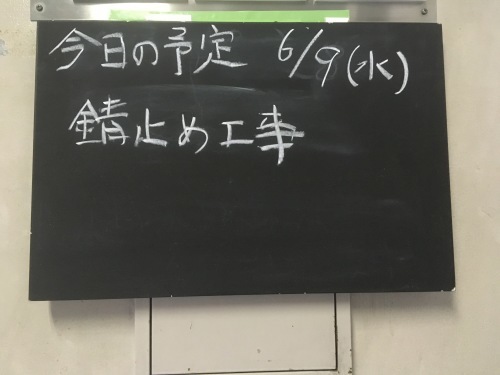 今日の予定 6/9(水)
錆止め工事